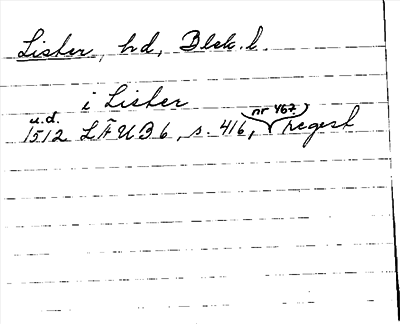 Lister, hd, Blek. l.
i Lister
u.d.
1512 LÄUB 6, s. 416, nr 467, regest